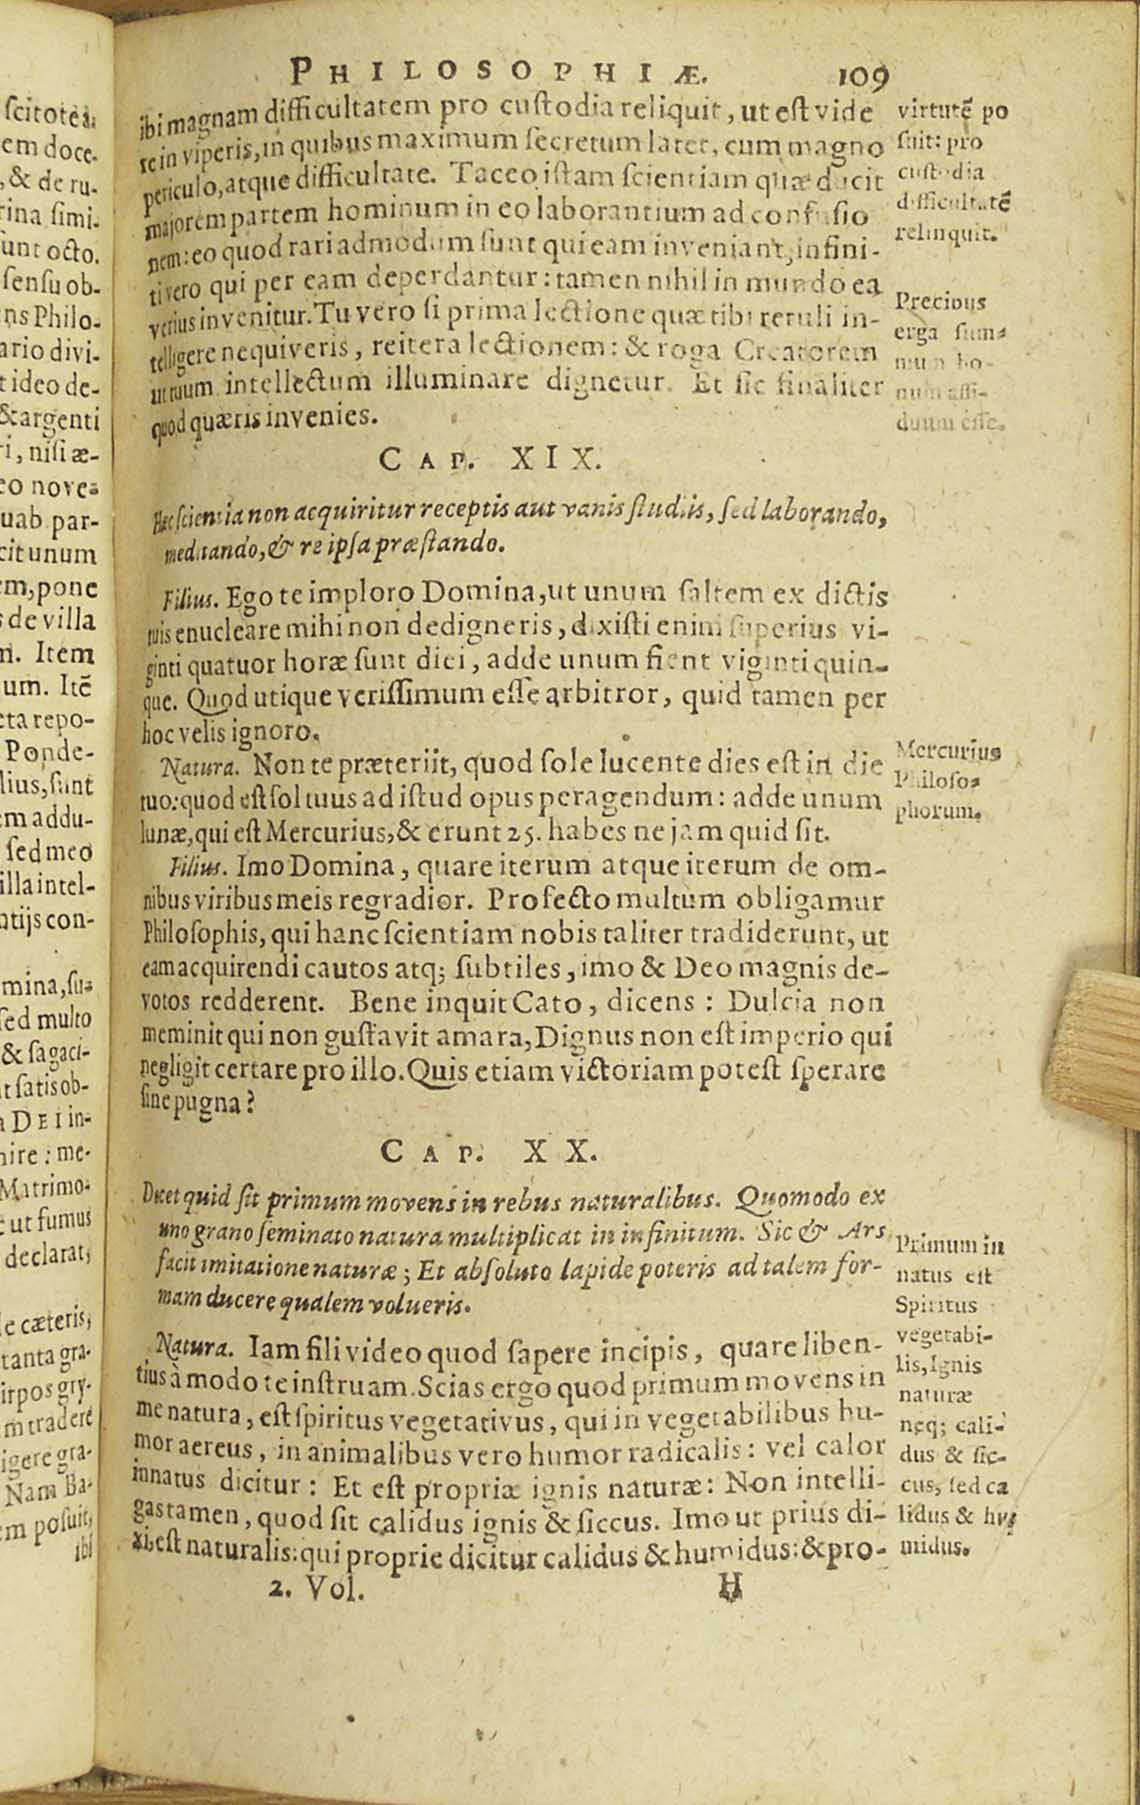 PHILOSOPHIÆ. 109
ibi magnam difficultatem pro custodia reliquit, ut est vide
re in viperis, in quibus maximum secretum latet, cum magno
periculo, atque difficultate. Taceo istam scientiam quæ ducit
majorem partem hominum in eo laborantium ad confusio
nem: eo quod rari admodum sunt qui eam inveniant, infini-
ti vero qui per eam deperdantur: tamen nihil in mundo ea
verius invenitur. Tu vero si prima lectione quæ tibi retuli in-
telligere nequiveris, reitera lectionem: & roga Creatorem
ut tuum intellectum illuminare dignetur. Et sic finaliter
quod quæris invenies.
virtutē po
suit: pro
custodia
difficultatē
relinquit.
Precibus
erga sum-
mum bo-
num assi-
duum esse.
CAP. XIX.
Hæc scientia non acquiritur receptis aut vanis studiis, sed laborando,
meditando, & re ipsa præstando.
Filius. Ego te imploro Domina, ut unum saltem ex dictis
tuis enucleare mihi non dedigneris, dixisti enim superius vi-
ginti quatuor horæ sunt diei, adde unum fient viginti quin-
que. Quod utique verissimum esse arbitror, quid tamen per
hoc velis ignoro.
Natura. Non te præteriit, quod sole lucente dies est in die
tuo: quod est sol tuus ad istud opus peragendum: adde unum
lunæ, qui est Mercurius, & erunt 25. habes ne jam quid sit.
Mercurius
Philoso-
phorum.
Filius. Imo Domina, quare iterum atque iterum de om-
nibus viribus meis regradior. Profecto multum obligamur
Philosophis, qui hanc scientiam nobis taliter tradiderunt, ut
eam acquirendi cautos atq; subtiles, imo & Deo magnis de-
votos redderent. Bene inquit Cato, dicens: Dulcia non
meminit qui non gustavit amara, Dignus non est imperio qui
negligit certare pro illo. Quis etiam victoriam potest sperare
sine pugna?
CAP. XX.
Docet quid sit primum movens in rebus naturalibus. Quomodo ex
uno grano seminato natura multiplicat in infinitum. Sic & Ars
facit imitatione naturæ; Et absoluto lapide poteris ad talem for-
mam ducere qualem volueris.
Natura. Iam fili video quod sapere incipis, quare liben-
tius à modo te instruam. Scias ergo quod primum movens in
me natura, est spiritus vegetativus, qui in vegetabilibus hu-
mor aereus, in animalibus vero humor radicalis: vel calor
innatus dicitur: Et est propriæ ignis naturæ: Non intelli-
gas tamen, quod sit calidus ignis & siccus. Imo ut prius di-
xi, est naturalis: qui proprie dicitur calidus & humidus: & pro-
Primum in
natus est
Spiritus
vegetabi-
lis, Ignis
naturæ
neq; cali-
dus & sic-
cus, sed ca
lidus & hu-
midus.
2. Vol. H